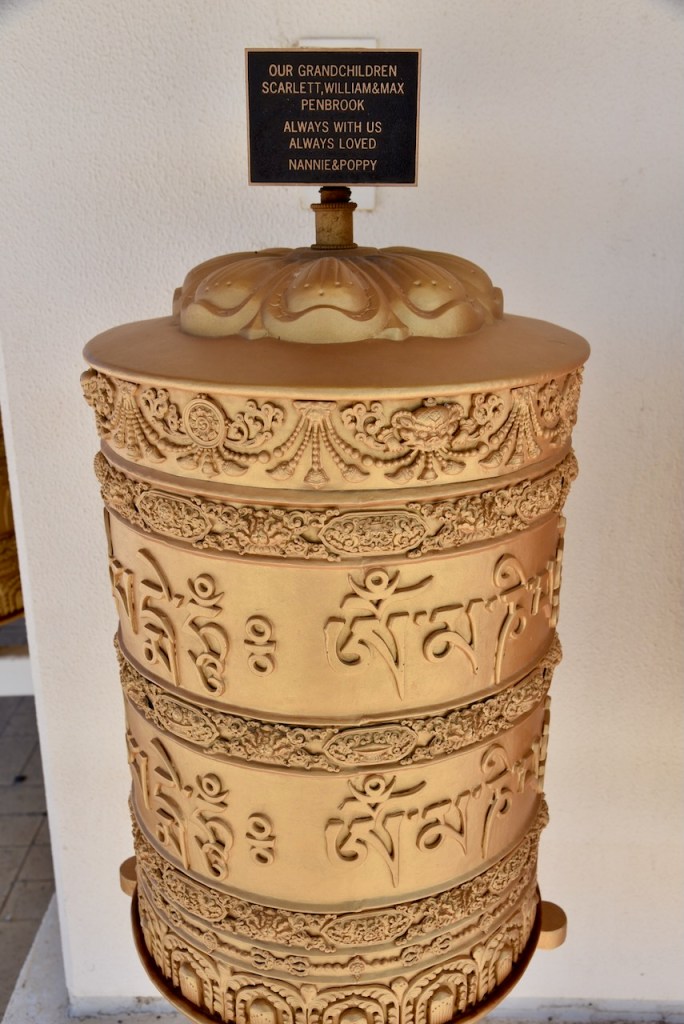 OUR GRANDCHILDREN
SCARLETT,WILLIAM&MAX
PENBROOK
ALWAYS WITH US
ALWAYS LOVED
NANNIE&POPPY
དྨེ་ཧཱུྃ༔ ཨོཾ་མ་ཎི་
དྨེ་ཧཱུྃ༔ ཨོཾ་མ་ཎི་